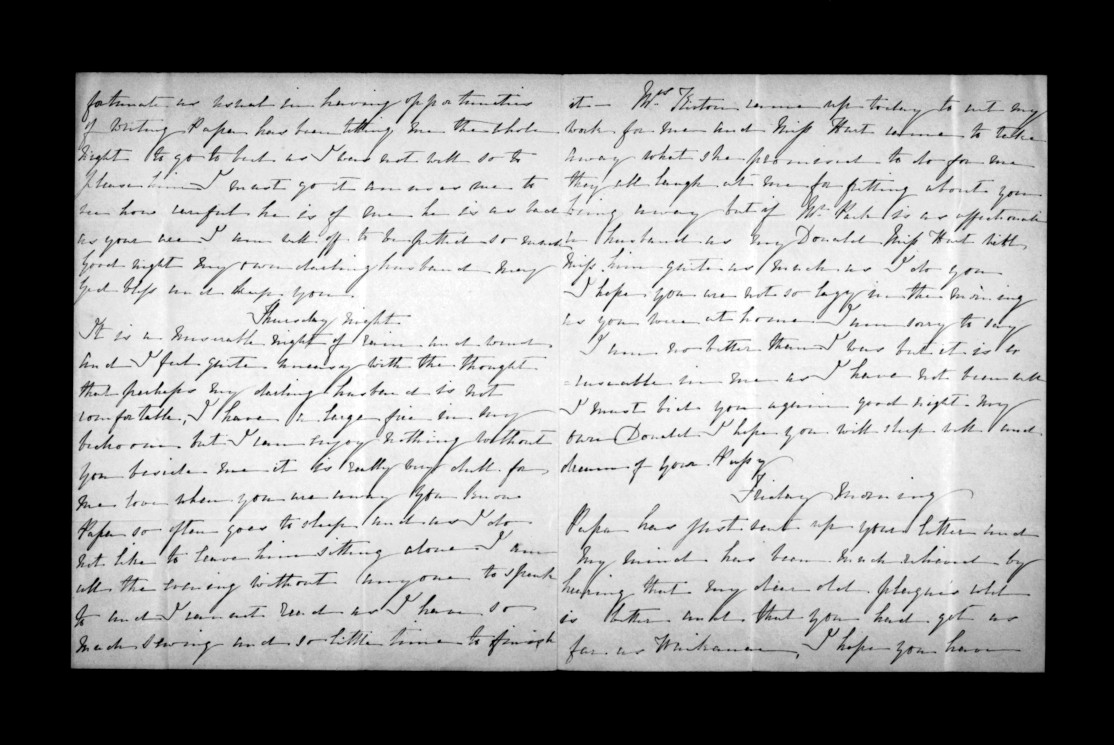 fortunate as usual in having opportunities
of writing Papa has been telling me the whole
night to go to bed as I was not well so to
please him I must go it amuses me to
see how careful he is of me he is as bad
as you are I am well off to be petted so much
Good night my own darling husband may
God bless and keep you.
Thursday night.
It is a miserable night of rain and wind
and I feel quite uneasy with the thought
that perhaps my darling husband is not
comfortable, I have a large fire in my
bedroom but I can enjoy nothing without
you beside me it is really very dull for
me love when you are away You know
Papa so often goes to sleep and as I do
not like to leave him sitting alone I am
all the evening without anyone to speak
to and I cannot read as I have so
much sewing and so little time to finish
it – Mrs came up today to cut my
work for me and Miss Hart came to take
away what she promised to do for me
they all laugh at me for fretting about you
being away but if Mr Park is as affectionate
a husband as my Donald Miss Hart will
miss him quite as much as I do you
I hope you are not so lazy in the morning
as you were at home I am sorry to say
I am no better than I was but it is
in me as I have not been well
I must bid you again good night my
own Donald I hope you will sleep well and
dream of your Pussy
Friday morning
Papa has just sent up your letter and
my mind has been much relieved by
hearing that my dear old plague's cold
is better and that you had got as
far as , I hope you have